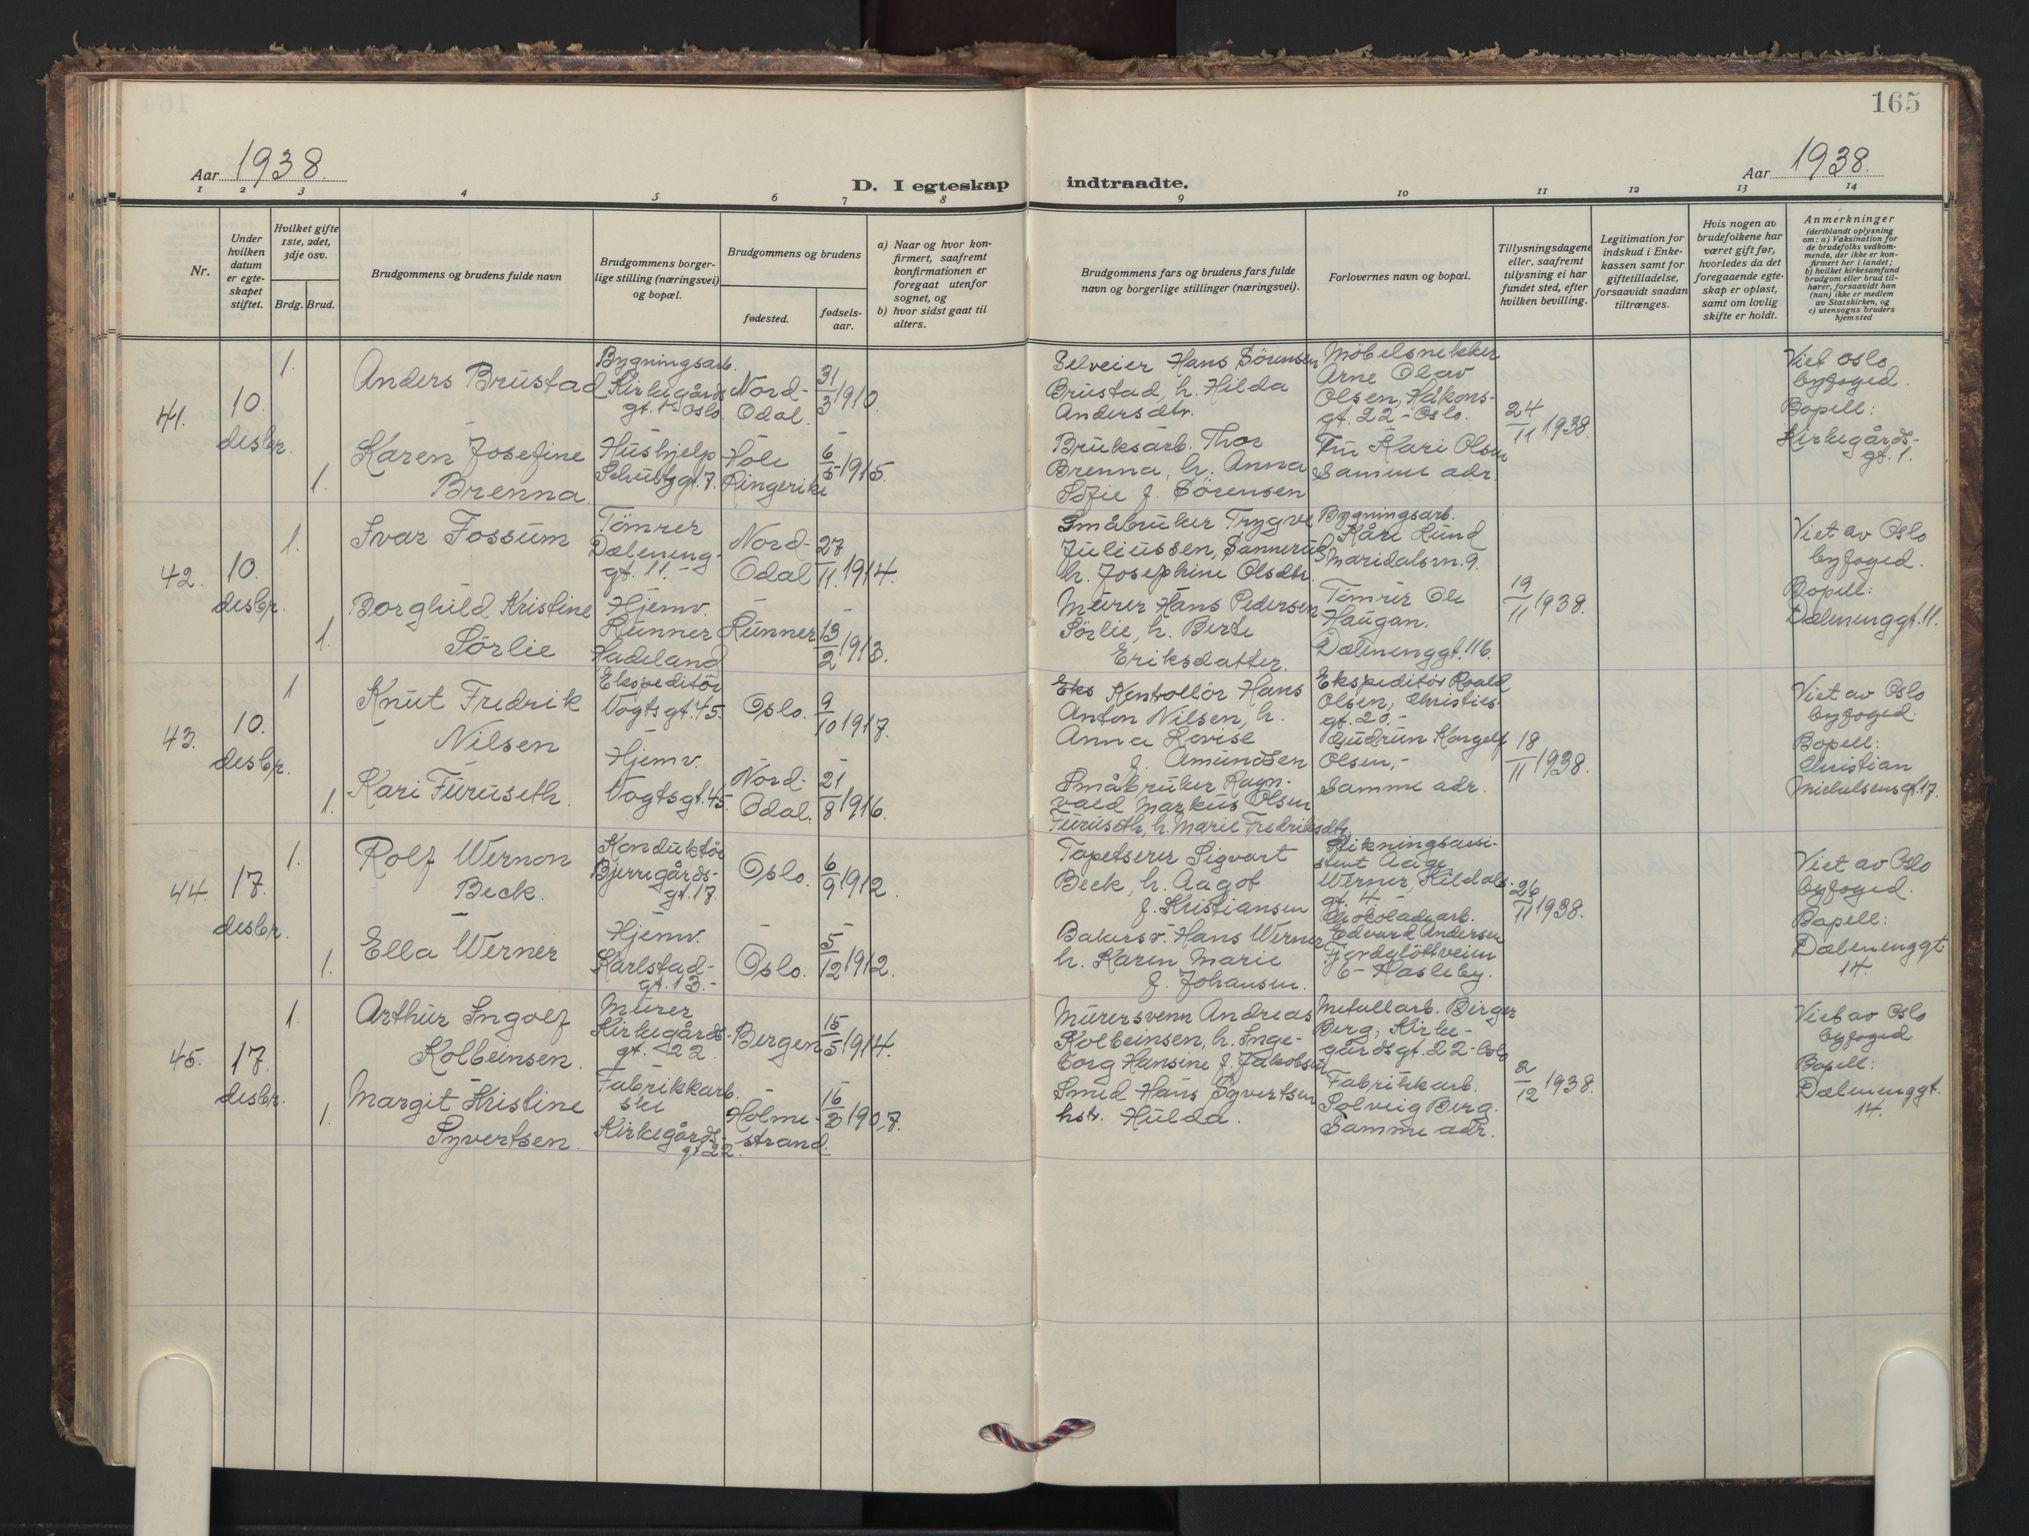 165
Aar 1938.
D. I egteskap indtraadte.
Aar 1938.
1 2 3 4 5 6 7 8 9 10 11 12 13 14
Nr.
Under hvilken datum er egteskapet stiftet.
Hvilket gifte 1ste, 2det, 3dje osv.
Brdg. Brud.
Brudgommens og brudens fulde navn
Brudgommens borgerlige stilling (næringsvei) og bopæl.
Brudgommens og brudens
fødested.
fødselsaar.
a) Naar og hvor konfirmert, saafremt konfirmationen er foregaat utenfor sognet, og
b) hvor sidst gaat til alters.
Brudgommens fars og brudens fars fulde navn og borgerlige stillinger (næringsvei).
Forlovernes navn og bopæl.
Tillysningsdagene eller, saafremt tullysning ei har fundet sted, efter hvilken bevilling.
Legitimation for indskud i Enkekassen samt for giftetilladelse, forsaavidt saadan tiltrænges.
Hvis nogen av brudefolkene har været gift før, hvorledes da det foregaaende egteskap er opløst, samt om lovlig skifte er holdt.
Anmerkninger (deriblandt oplysning om: a) Vaksination for de brudefolks vedkommende, der ikke er konfirmert her i landet; b) hvilket kirkesamfund brudgom eller brud tilhører, forsaavidt han (hun) ikke er medlem av Statskirken, og c) utensogns bruders hjemsted
41.
10. desbr.
1.
Anders Brustad
Bygningsarb. Kirkegårds gt. 1 - Oslo.
Nord-Odal.
31/3 1910.
Selveier Hans Sörensen Brustad, h. Hilda Andersdtr.
Möbelsnekker Arne Olav Olsen, Håkonsgt. 22 - Oslo.
24/11 1938.
Viet Oslo byfoged. Bopell: Kirkegårdsgt. 1.
1.
Karen Josefine Brenna.
Hushjelp Schultzgt. 7.
Hole Ringerike
6/5 1915.
Bruksarb. Thor Brenna, h. Anna Sofie f. Sörensen
Fru Kari Olsen Samme adr.
42.
10. desbr.
1.
Ivar Fossum
Tömrer Dælenenggt. 11. -
Nord-Odal
27/11 1914.
Småbruker Trygve Juliussen, Sannerud h. Josephine Olsdtr.
Bygningsarb. Kåre Lund Maridalsvn. 9.
19/11 1938.
Viet av Oslo byfoged. Bopell: Dælenenggt. 11.
1.
Borghild Kristine Sörlie
Hjemv. Lunner Hadeland
Lunner
13/2 1913.
Murer Hans Pedersen Sörlie, h. Berte Eriksdatter.
Tömrer Ole Haugan. Dælenenggt. 11b.
43.
10. desbr.
1
Knut Fredrik Nilsen
Ekspeditör Vogtsgt. 45.
Oslo.
9/10 1917.
Eks Kontrollör Hans Anton Nilsen, h. Anna Lovise f. Amundsen
Ekspeditör Roald Olsen, Christiesgt. 20. -
18/11 1938.
Viet av Oslo byfoged. Bopell: Christian Michelsensgt. 17.
1.
Kari Furuseth.
Hjemv. Vogtsgt. 45.
Nord-Odal.
21/8 1916.
Småbruker Ragnvald Markus Olsen Furuseth, h. Marie Fredriksdtr.
Gudrun Olsen, - Samme adr.
44.
17. desbr.
1.
Rolf Wernon Beck.
Konduktör Bjerregårdsgt. 17.
Oslo.
6/9 1912.
Tapetserer Sigvart Beck, h. Aagot f. Kristiansen
Aage Werner, Kildalsgt. 4. -
26/11 1938.
Viet av Oslo byfoged. Bopell: Dælenenggt 14.
1.
Ella Werner
Hjemv. Karlstadgt. 13. -
Oslo.
5/12 1912.
Bakersv. Hans Werner h. Karen Marie f. Johansen.
Chokoladearb. Edvard Andersen Fjordglöttveien 6 - Hasleby.
45.
17. desbr.
1.
Arthur Ingolf Kolbeinsen.
Murer Kirkegårdsgt. 22.
Bergen
15/5 1914.
Murersvenn Andreas Kolbeinsen, h. Ingeborg Hansine f. Jakobsen
Metallarb. Birger Berg, Kirkegårdsgt. 22 - Oslo
2/12 1938.
Viet av Oslo byfoged Bopell: Dælenenggt. 14.
1.
Margit Kristine Syvertsen.
Fabrikkarb.ske Kirkegårdsgt 22.
Holmestrand.
16/3 1907.
Smed Hans Syvertsen hstr. Hulda.
Fabrikkarb. Solveig Berg. Samme adr.